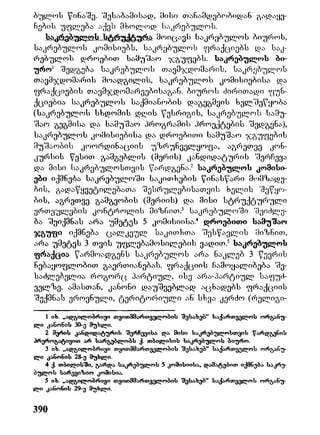 ბულოს წინაშე. შესაბამისად, მისი თანამდებობიდან გადაყე-
ნების უფლება აქვს მხოლოდ საკრებულოს.
საკრებულოს სტრუქტურა მოიცავს საკრებულოს ბიუროს,
საკრებულოს კომისიებს, საკრებულოს ფრაქციებს და საკ-
რებულოს დროებით სამუშაო ჯგუფებს. საკრებულოს ბი-
ურო¹ შედგება საკრებულოს თავმჯდომარის, საკრებულოს
თავმჯდომარის მოადგილის, საკრებულოს კომისიებისა და
ფრაქციების თავმჯდომარეებისაგან. ბიუროს ძირითადი ფუნ-
ქციებია საკრებულოს საქმიანობის დაგეგმვის ხელშეწყობა
(საკრებულოს სხდომის დღის წესრიგის, საკრებულოს სამუ-
შაო გეგმისა და სამუშაო პროგრამის პროექტების შედგენა),
საკრებულოს კომისიებისა და დროებითი სამუშაო ჯგუფების
მუშაობის კოორდინაციის უზრუნველყოფა, აგრეთვე კონ-
კურსის წესით გამგებლის (მერის) კანდიდატურის შერჩევა
და მისი საკრებულოსთვის წარდგენა.² საკრებულოს კომისი-
ები იქმნება საკრებულოში საკითხების წინასწარი მომზადე-
ბის, გადაწყვეტილებათა შესრულებისათვის ხელის შეწყო-
ბის, აგრეთვე გამგეობის (მერიის) და მისი სტრუქტურული
ერთეულების კონტროლის მიზნით.³ საკრებულოში შეიძლე-
ბა შეიქმნას არა უმეტეს 5 კომისიისა.⁴ დროებითი სამუშაო
ჯგუფი იქმნება ცალკეულ საკითხთა შესწავლის მიზნით,
არა უმეტეს 3 თვის უფლებამოსილების ვადით.⁵ საკრებულოს
ფრაქცია წარმოადგენს საკრებულოს არა ნაკლებ 3 წევრის
ნებაყოფლობით გაერთიანებას. ფრაქციის ჩამოყალიბება შე-
საძლებელია როგორც პარტიულ, ისე არა-პარტიულ საფუძ-
ველზე. ამასთან, კანონი დაუშვებლად აცხადებს ფრაქციის
შექმნას ეროვნული, ტერიტორიული ან სხვა კერძო (რელიგი-
1 იხ. „ადგილობრივი თვითმმართველობის შესახებ" საქართველოს ორგანუ-
ლი კანონის 30-ე მუხლი.
2 მერის კანდიდატურის შერჩევისა და მისი საკრებულოსთვის წარდგენის
პრეროგატივით არ სარგებლობს ქ. თბილისის საკრებულოს ბიურო.
3 იხ. „ადგილობრივი თვითმმართველობის შესახებ" საქართველოს ორგანუ-
ლი კანონის 28-ე მუხლი.
4 ქ. თბილისში, გარდა საკრებულოს 5 კომისიისა, დამატებით იქმნება საკრე-
ბულოს სარევიზიო კომისია.
5 იხ. „ადგილობრივი თვითმმართველობის შესახებ" საქართველოს ორგანუ-
ლი კანონის 29-ე მუხლი.
390